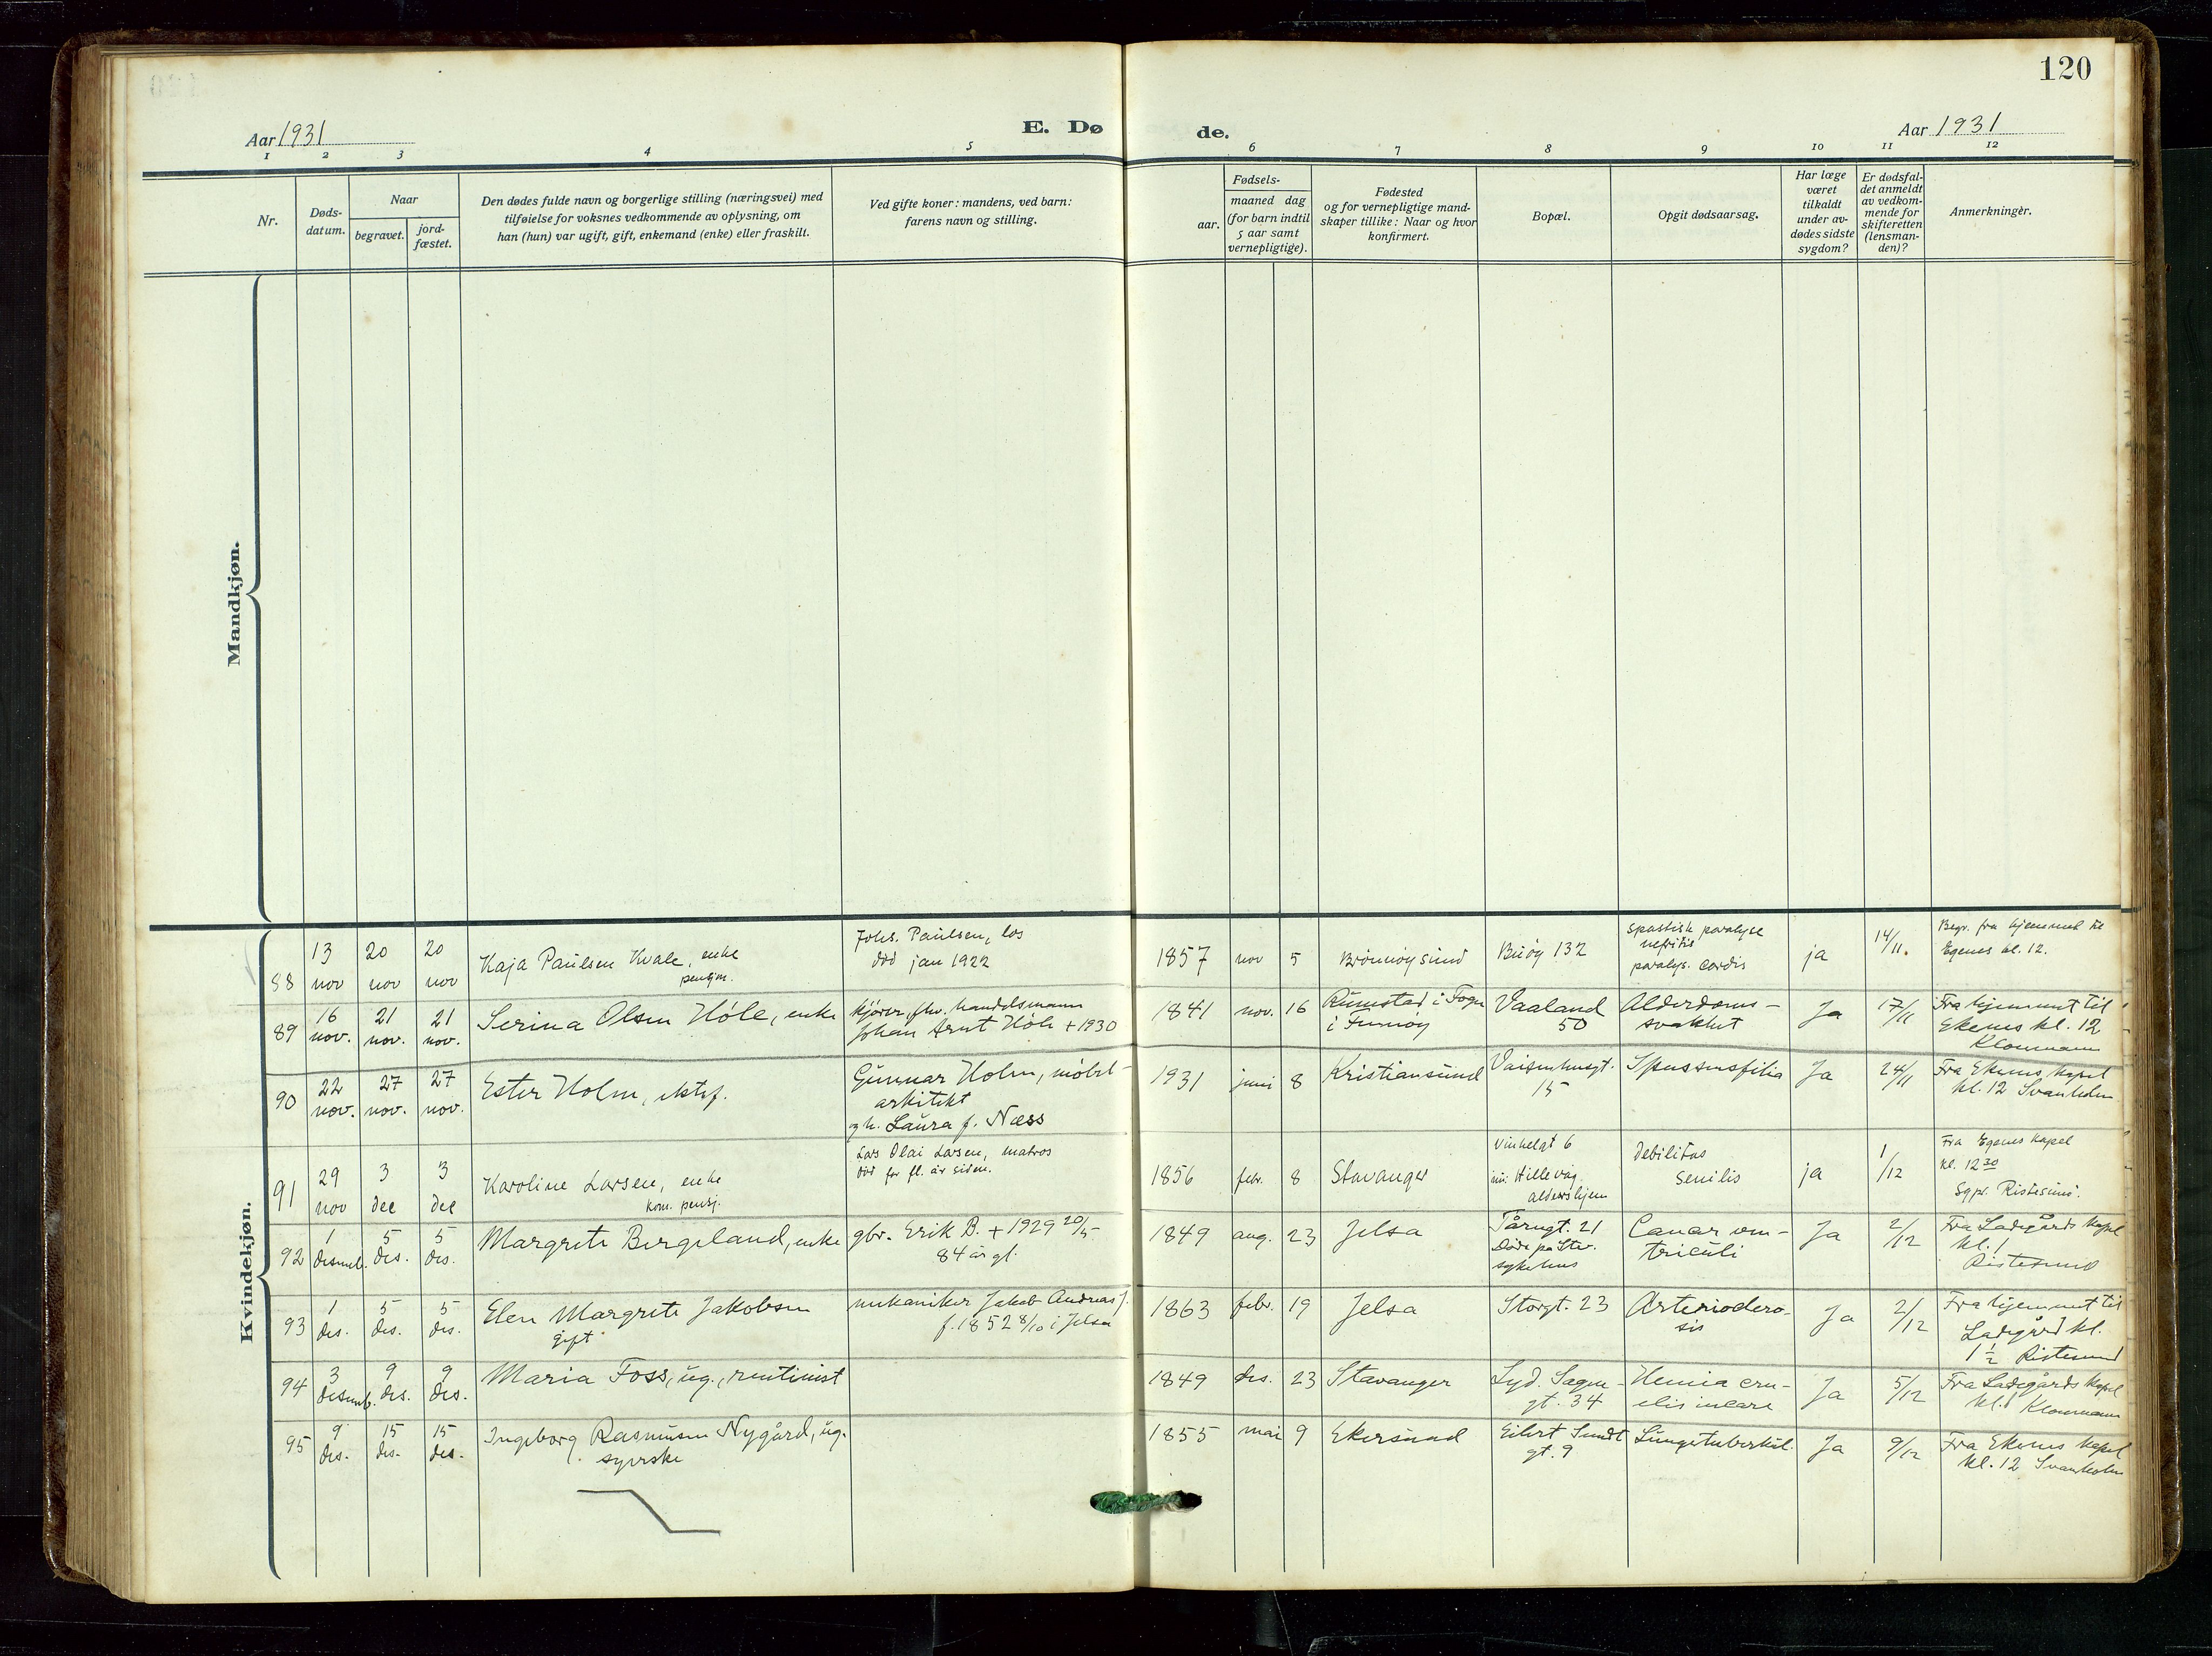 120
Aar 1931
E. Dø
de.
Aar 1931
1 2 3 4 5 6 7 8 9 10 11 12
Nr.
Døds-
datum.
Naar
begravet.
jord-
fæstet.
Den dødes fulde navn og borgerlige stilling (næringsvei) med
tilføielse for voksnes vedkommende av oplysning, om
han (hun) var ugift, gift, enkemand (enke) eller fraskilt.
Ved gifte koner: mandens, ved barn:
farens navn og stilling.
Fødsels-
aar.
maaned dag
(for barn indtil
5 aar samt
vernepligtige).
Fødested
og for vernepligtige mand-
skaper tillike: Naar og hvor
konfirmert.
Bopæl.
Opgit dødsaarsag.
Har læge
været
tilkaldt
under av-
dødes sidste
sygdom?
Er dødsfal-
det anmeldt
av vedkom-
mende for
skifteretten
(lensman-
den)?
Anmerkninger.
Mandkjøn.
Kvindekjøn.
88
13
nov
20
nov
20
nov
Kaja Paulsen Kvale, enke
pensjon.
Johs. Paulsen, los
død jan 1922
1857
nov
5
Brønnøysund
Buøy 132
spastisk paralyse
nefritis
paralys. cordis
ja
14/11.
Begr. fra hjemmet til
Egenes kl. 12.
89
16
nov.
21
nov.
21
nov.
Serina Olsen Höle, enke
kjører, fhv. handelsmann
Johan Arnt Höle + 1930
1841
nov.
16
i Fogn
Vaaland
50
Alderdoms-
svakhet
Ja
17/11
Fra hjemmet til
Ekenes kl. 12
Klovmann
90
22
nov.
27
nov.
27
nov.
Ester Holm, ektef.
Gunnar Holm, møbel-
arkitekt
og h. Laura f. Næss
1931
juni
8
Kristiansund
Vaisenhusgt.
15
Spasmofilia
Ja
24/11
Fra Ekenes kapel
kl. 12 Svanholm
91
29
nov
3
dec
3
dec
Karoline Larsen, enke
kom. pensj.
Lars Olai Larsen, matros
død for fl. år siden.
1856
febr.
8
Stavanger
Vinkelgt 6
Hillevåg
aldershjem
Debilitas
senilis
ja
1/12
Fra Egenes kapel
kl. 12 30
Sgpr. Ristesund.
92
1
desemb.
5
des.
5
des.
Margrete Bergeland, enke
gbr. Erik B. + 1929 20/5-
84 år gl.
1849
aug.
23
Jelsa
Tårngt. 21
Døde på Stav.
sykehus
Cancer ven-
triculi
Ja
2/12
Fra Ladegårds kapel
kl. 1
Ristesund
93
1
des.
5
des.
5
des.
Elen Margrete Jakobsen
gift
mekaniker Jakob Andreas J.
f. 1852 8/10 i Jelsa
1863
febr.
19
Jelsa
Storgt. 23
Arteriosclero-
sis
Ja
2/12
Fra hjemmet til
Ladegård kl.
1 1/2 Ristesund
94
3
desemb.
9
des.
9
des.
Maria Foss, ug., rentinist
1849
des.
23
Stavanger
Lyd. Sagen-
gt. 34
Hernia cru-
Ja
5/12
Fra Ladegårds kapel
kl. 1 Klovmann
95
9
des.
15
des.
15
des.
Ingeborg Rasmusen Nygård, ug.
syerske
1855
mai
9
Ekersund
Eilert Sundt
gt. 9
Lungetuberkul.
Ja
9/12
Fra Ekenes kapel
kl. 12 Svanholm